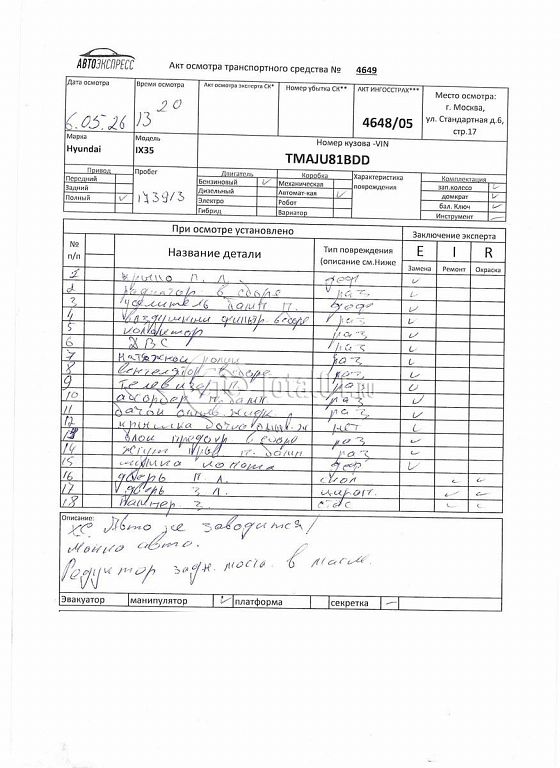 АВТОЭКСПРЕСС
Акт осмотра транспортного средства № 4649
Дата осмотра
6.05.26
Время осмотра
13 20
Акт осмотра эксперта СК*
Номер убытка СК**
АКТ ИНГОССТРАХ***
4648/05
Место осмотра:
г. Москва,
ул. Стандартная д.6,
стр.17
Марка
Hyundai
Модель
IX35
Номер кузова -VIN
TMAJU81BDD
Привод
Передний
Задний
Полный
Пробег
173913
Двигатель
Бензиновый
Дизельный
Электро
Гибрид
Коробка
Механическая
Автомат-кая
Робот
Вариатор
Характеристика
повреждения
Комплектация
зап.колесо
домкрат
бал. Ключ
Инструмент
При осмотре установлено
Заключение эксперта
№
п/п
Название детали
Тип повреждения
(описание см.Ниже
E I R
Замена Ремонт Окраска
1 крыло п. л. деф
2 радиатор в сборе раз
3 усилитель бамп п. деф
4 воздушный фильтр в сборе раз
5 раз
6 ДВС раз
7 натяжной ролик раз
8 вентилятор в сборе раз
9 телевизор п. раз
10 абсорбер п. бамп раз
11 бачок омыв. жидк раз
12 крышка бачка омыв. ж нет
13 блок предохр в сборе раз
14 жгут пров п. бамп раз
15 капота деф
16 дверь п л. скол
17 дверь з л. царап.
18 бампер з.
Описание:
Авто не заводится!
авто.
Редуктор задн. моста в масле.
Эвакуатор манипулятор платформа секретка